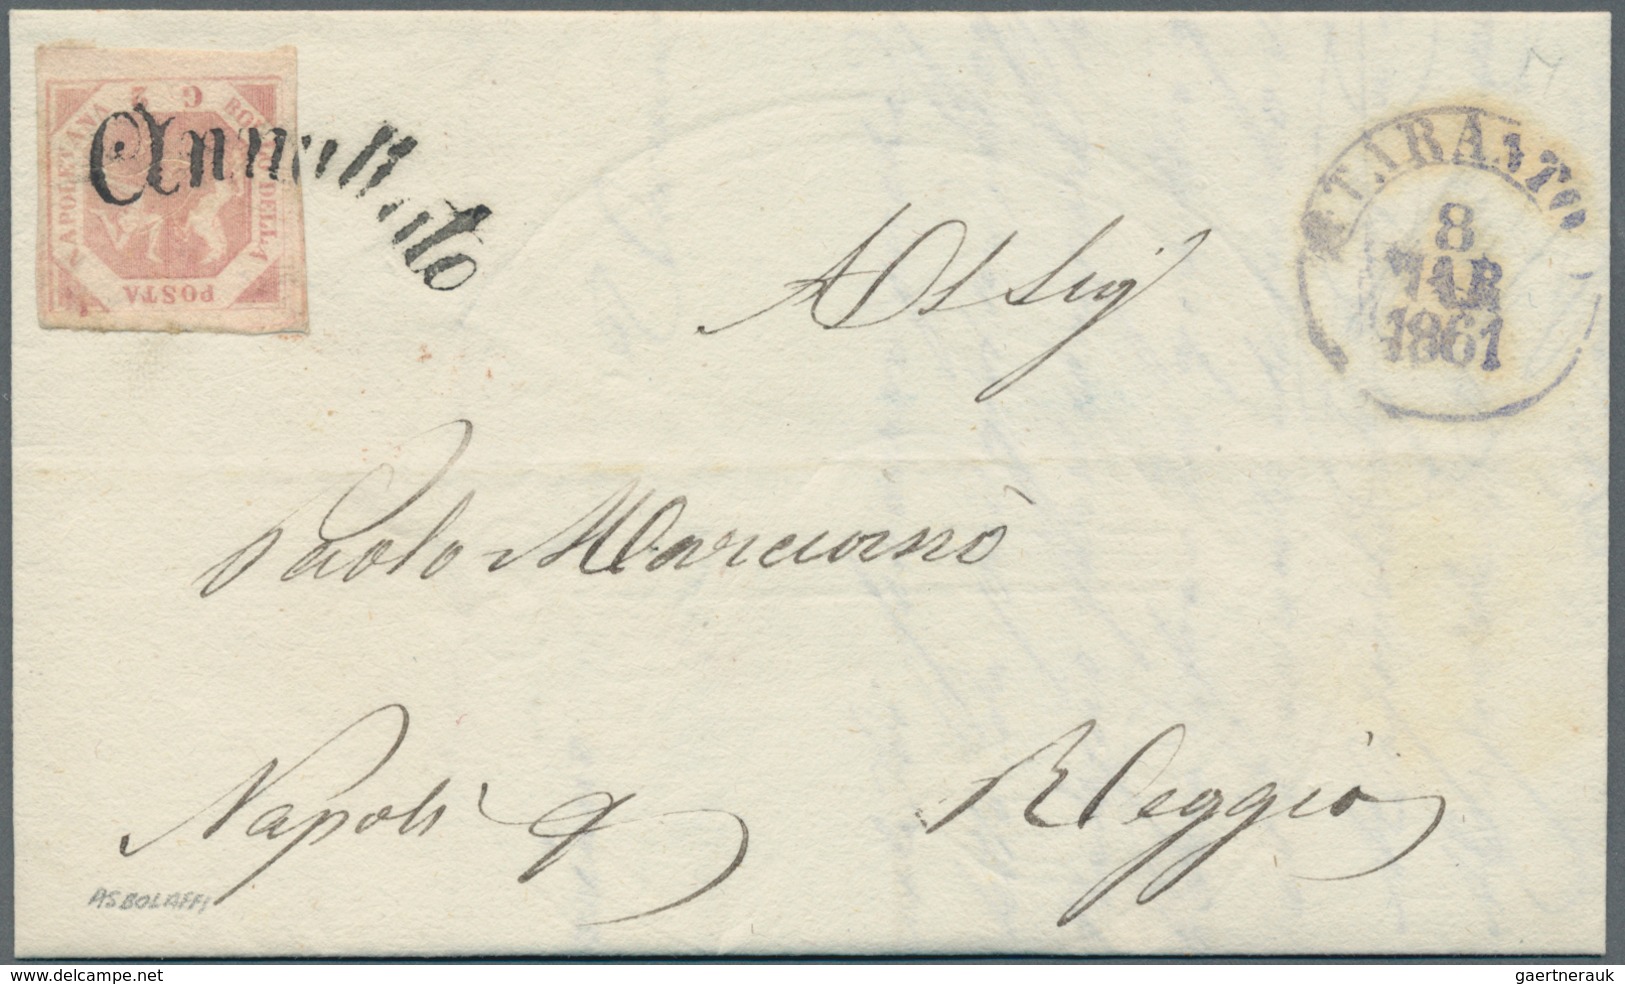 G 2
BOLLO DELLA
POSTA
NAPOLETANA
Annullato
TARANTO
8
MAR
1861
Al Sig
Paolo Marcianò
Napoli
Reggio
ASBOLAFFI
www.delcampe.net
gaertnerauk